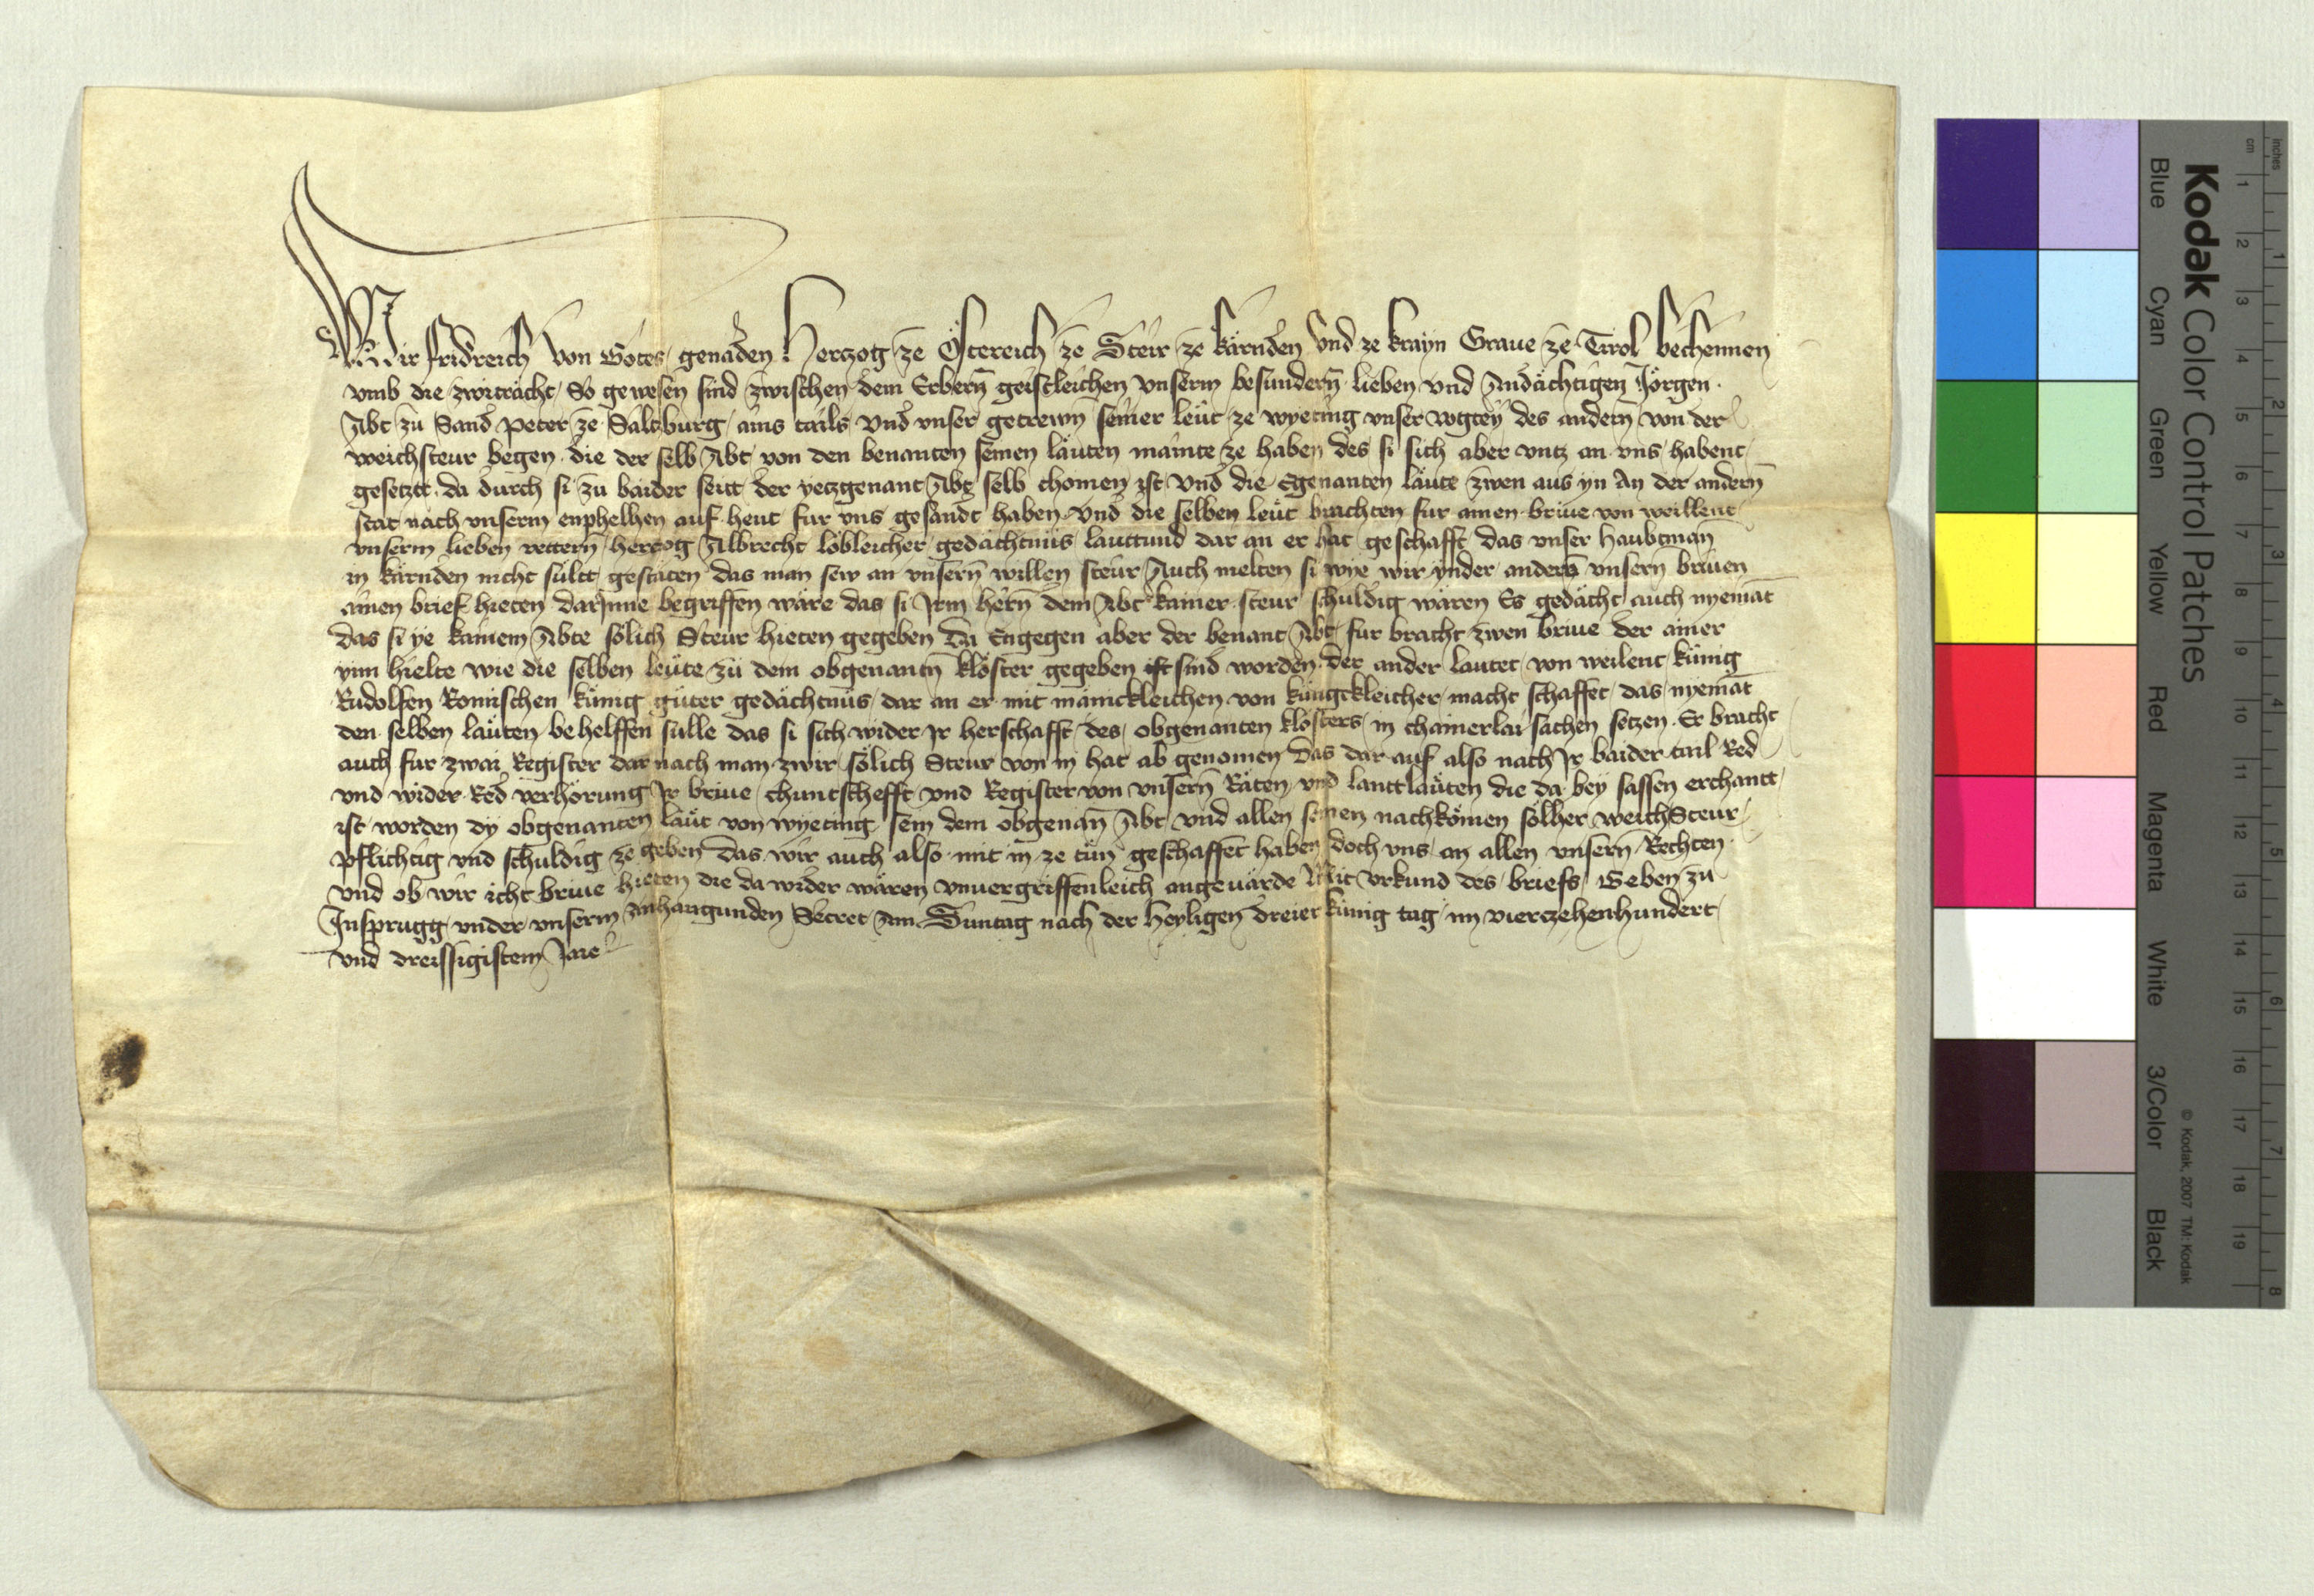 Wir fridreich von Gotes genaden Herczog ze Östereich ze Steir ze kärnden vnd ze krayn Graue ze Tirol bechennen
vmb die zwitrácht So gewesen sind zwischen dem Erbern̄ geistleichen vnserm besundern̄ lieben vnd Andáchtigen Jörgen
Abt zu Sand Peter ze Saltzburg ains tails vnd vnser getrewn̄ seiner leüt ze wyeting vnser vogtey des andern̄ von der
weichsteur wegen die der selb Abt von den benanten seinen läuten mainte ze haben des si sich aber vntz an vns habent
gesetzt da durch si zu baider seitt der yetzgenant Abt selb chomen ist vnd die Egenanten läute zwen aus yn An der andern̄
stat nach vnserm enphelhen auf heut für vns gesandt haben vnd die selben leüt brachten für ainen briue von weillent
vnserm lieben vettern̄ herczog Albrecht lobleicher gedächtnüs lauttund dar an er hat geschafft das vnser haubtman
in kärnden nicht süllt gestäten das man sew an vnsern̄ willen steur Auch melten si wye wir vnder andern̄ vnsern̄ briuen
ainen brief hieten darjnne begriffen wäre das si Jrm hern̄ dem Abt kainer steur schuldig wären Es gedächt auch nyemāt
das si ye kainem Abte solich Steur hieten gegeben Da Engegen aber der benant Abt für bracht zwen briue der ainer
ynn hielte wie die selben leüte zü dem obgenantn̄ klöster gegeben ist sind worden der ander lautet von weilent künig
Rudolfen Romischen künig güter gedächtnüs dar an er mit mäinckleichen von küngckleicher macht schaffet das nyemāt
den selben läuten behelffen sülle das si sich wider Jr herschafft des obgenanten klosters in chainerlai sachen setzen Er bracht
auch für zwai Register dar nach man zwir sölich Steur von in hat ab genomen das dar auf also nach Jr baider tail Red
vnd wider Red verhörung Jr briue chuntschefft vnd Register von vnsern̄ Räten vnd lanttläuten die da bey sassen erchantt
ist worden dy obgenanten läut von wyeting sein dem obgenan̄ Abt vnd allen seinen nachkömen sölher weichSteur
pflichtig vnd schuldig ze geben das wir auch also mit in ze tün geschaffet haben doch vns an allen vnsern̄ Rechten
vnd ob wir icht briue hieten die da wider wären vnuergriffenleich angeuärde Mit vrkund des briefs Geben zu
Insprugg vnder vnserm anhangunden Secret Am Suntag nach der heyligen dreier künig tag im vierczehenhundert
vnd dreissigistem Jare